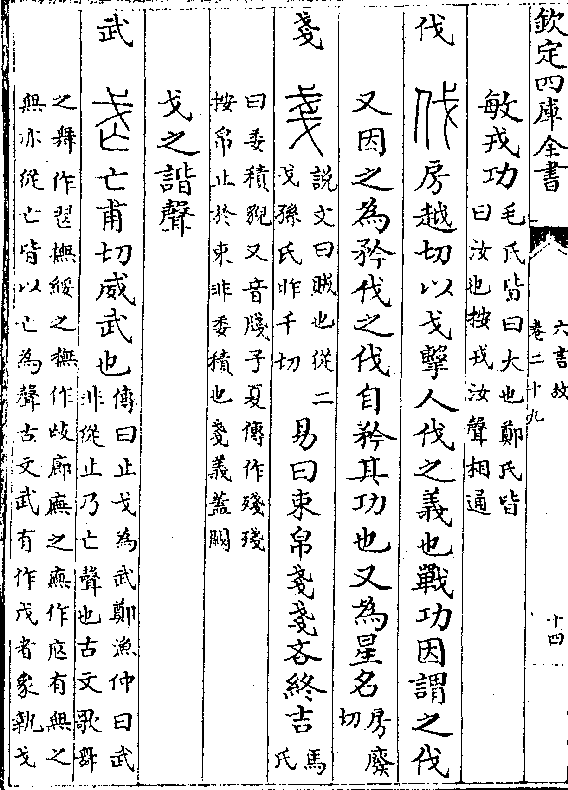 欽定四庫全書
六書故
卷二十九
十四
敏戎功毛氏皆曰大也鄭氏皆
曰汝也按戎汝聲相通
伐 房越切以戈擊人伐之義也戰功因謂之伐
又因之為矜伐之伐自矜其功也又為星名房廢
切
戔 說文曰賊也從二
戈孫氏昨千切
易曰束帛戔戔吝終吉馬
氏
曰委積貌又音牋子夏傳作殘殘
按帛止於束非委積也戔義蓋闕
戈之諧聲
武 亡甫切威武也傳曰止戈為武鄭漁仲曰武
非從止乃亡聲也古文歌舞
之舞作撫綏之撫作廊廡之廡作有無之
無亦從亡皆以亡為聲古文武有作戊者象執戈